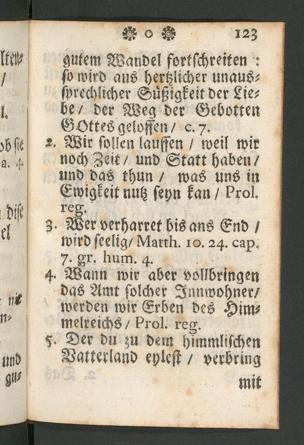 123
gutem Wandel fortschreiten :
so wird aus hertzlicher unaus-
sprechlicher Süßigkeit der Lie-
be / der Weg der Gebotten
GOttes geloffen / c. 7.
2. Wir sollen lauffen / weil wir
noch Zeit / und Statt haben /
und das thun / was uns in
Ewigkeit nutz seyn kan / Prol.
reg.
3. Wer verharret bis ans End /
wird seelig / Matth. 10. 24. cap.
7. gr. hum. 4.
4. Wann wir aber vollbringen
das Amt solcher Innwohner /
werden wir Erben des Him-
melreichs / Prol. reg.
5. Der du zu dem himmlischen
Vatterland eylest / verbring
mit